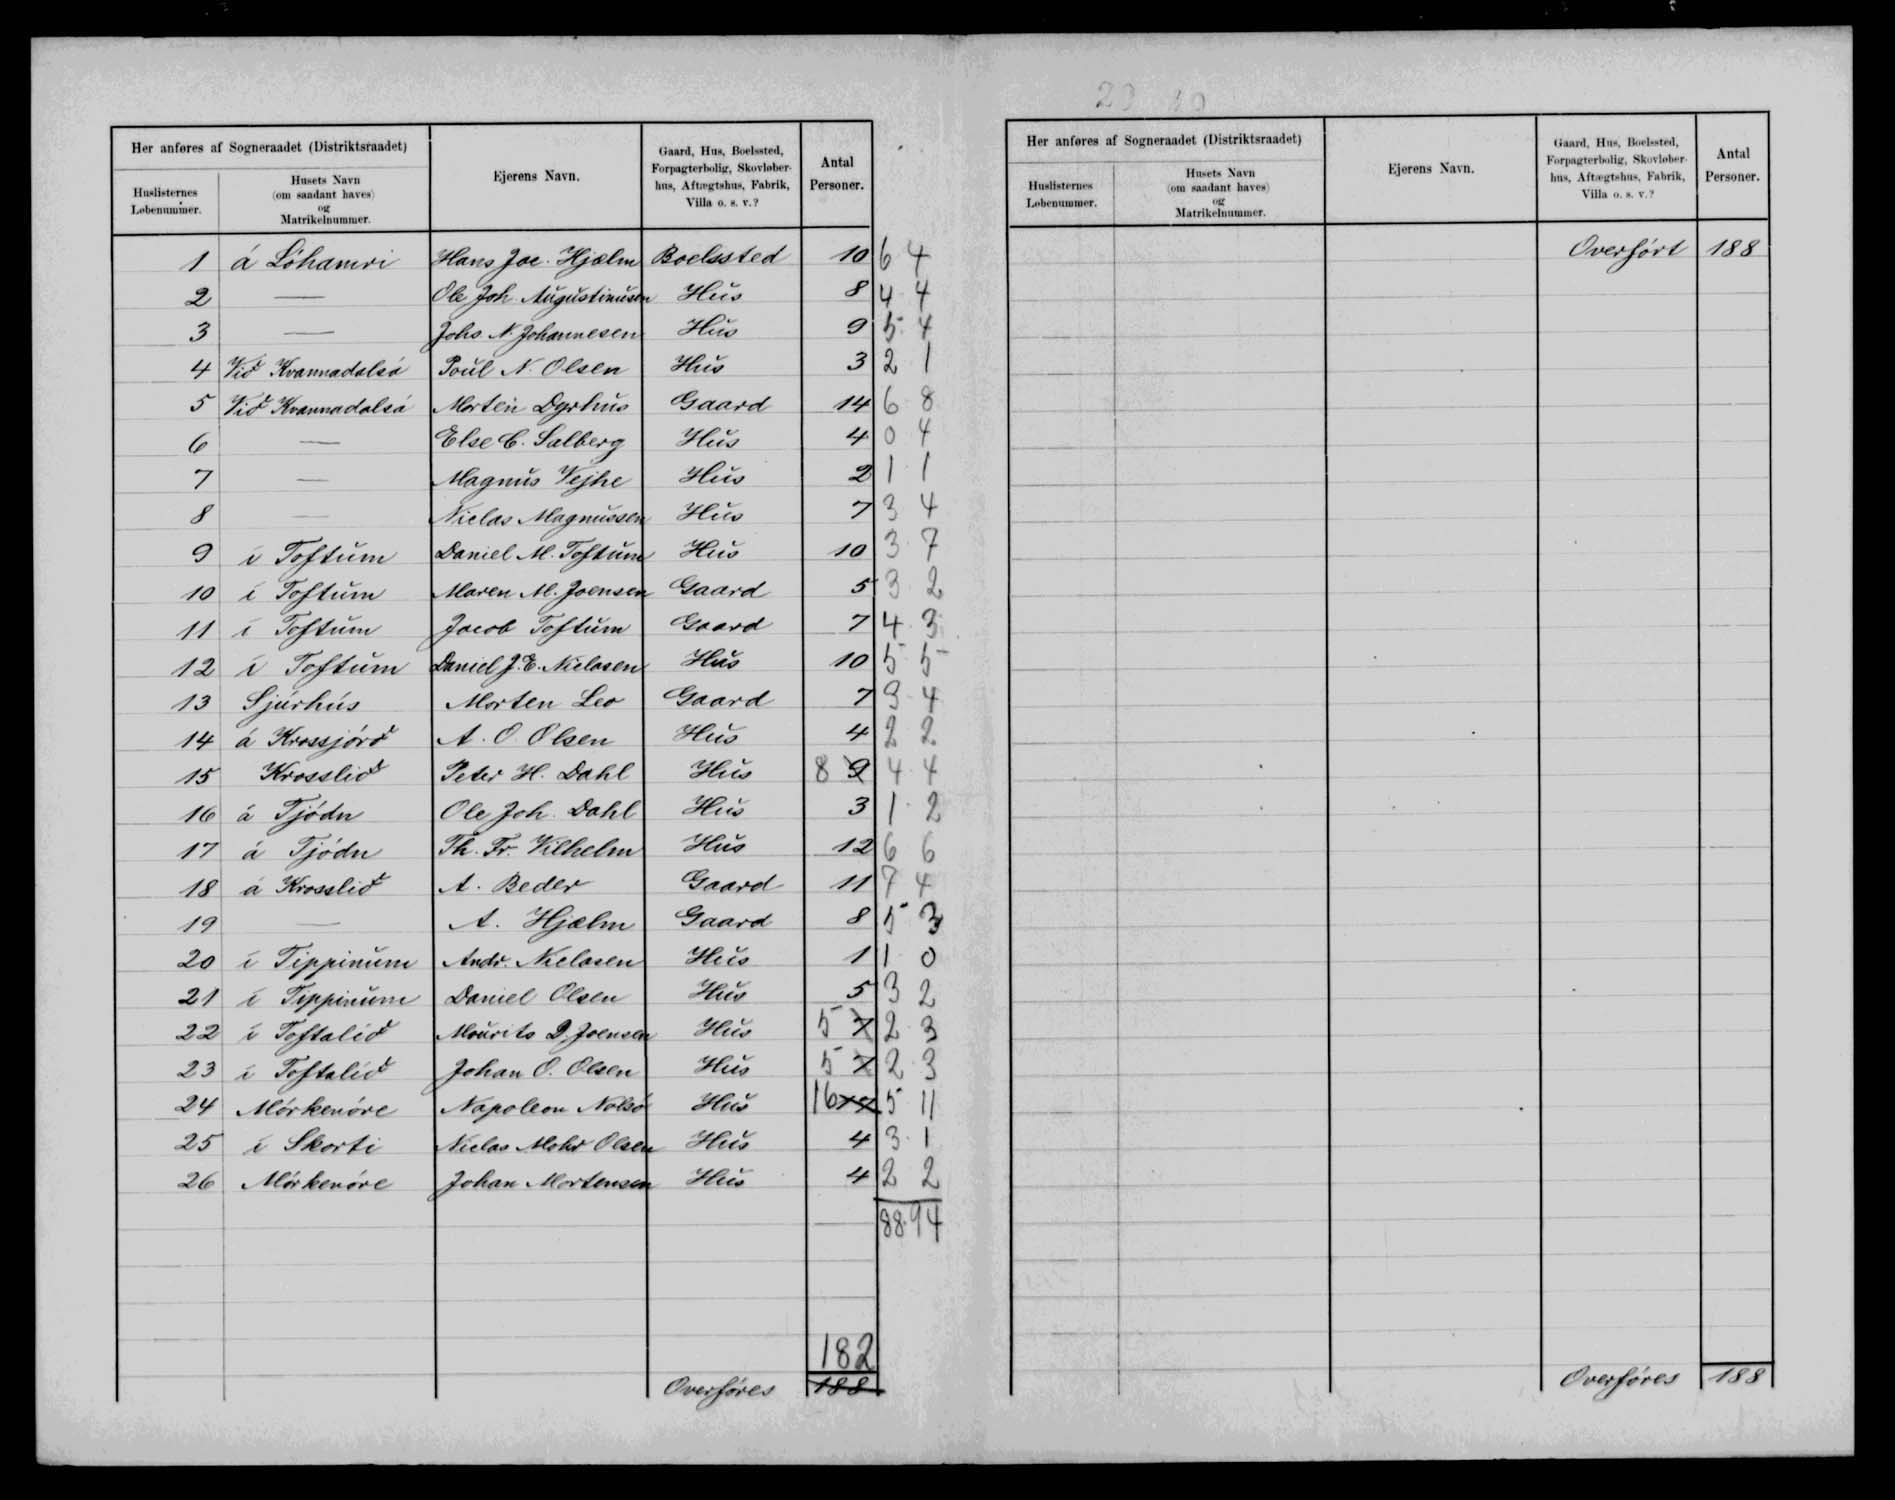 23 40
Her anføres af Sogneraadet (Distriktsraadet)
Huslisternes Løbenummer.
Husets Navn (om saadant haves) og Matrikelnummer.
Ejerens Navn.
Gaard, Hus, Boelssted, Forpagterbolig, Skovløberhus, Aftægtshus, Fabrik, Villa o. s. v.?
Antal Personer.
1 á Lóhamri Hans Jac. Hjælm Boelssted 10 6 4
2 — Ole Joh. Augustinusen Hus 8 4 4
3 — Johs N. Johannesen Hus 9 5 4
4 Við Kvannadalsá Poul N. Olsen Hus 3 2 1
5 Við Kvannadalsá Morten Dyrhus Gaard 14 6 8
6 — Else C. Salberg Hus 4 0 4
7 — Magnus Vejhe Hus 2 1 1
8 — Niclas Magnussen Hus 7 3 4
9 i Toftum Daniel M. Toftum Hus 10 3 7
10 i Toftum Maren M. Joensen Gaard 5 3 2
11 i Toftum Jacob Toftum Gaard 7 4 3
12 i Toftum Daniel J. E. Niclasen Hus 10 5 5
13 Sjúrhús Morten Leo Gaard 7 3 4
14 á Krossjórð A. O. Olsen Hus 4 2 2
15 Krosslið Peter H. Dahl Hus 8 9 4 4
16 á Tjódn Ole Joh. Dahl Hus 3 1 2
17 á Tjódn Th. Fr. Vilhelm Hus 12 6 6
18 á Krosslið A. Beder Gaard 11 7 4
19 — A. Hjælm Gaard 8 5 3
20 i Tippinum Andr. Niclasen Hus 1 1 0
21 i Tippinum Daniel Olsen Hus 5 3 2
22 i Toftalið Mourits D. Joensen Hus 5 7 2 3
23 i Toftalið Johan O. Olsen Hus 5 7 2 3
24 Mórkenóre Napoleon Nolsø Hus 16 5 11
25 i Skorti Niclas Mohr Olsen Hus 4 3 1
26 Mórkenóre Johan Mortensen Hus 4 2 2
88 94
182
Overføres 188
Her anføres af Sogneraadet (Distriktsraadet)
Huslisternes Løbenummer.
Husets Navn (om saadant haves) og Matrikelnummer.
Ejerens Navn.
Gaard, Hus, Boelssted, Forpagterbolig, Skovløberhus, Aftægtshus, Fabrik, Villa o. s. v.?
Antal Personer.
Overført 188
Overføres 188